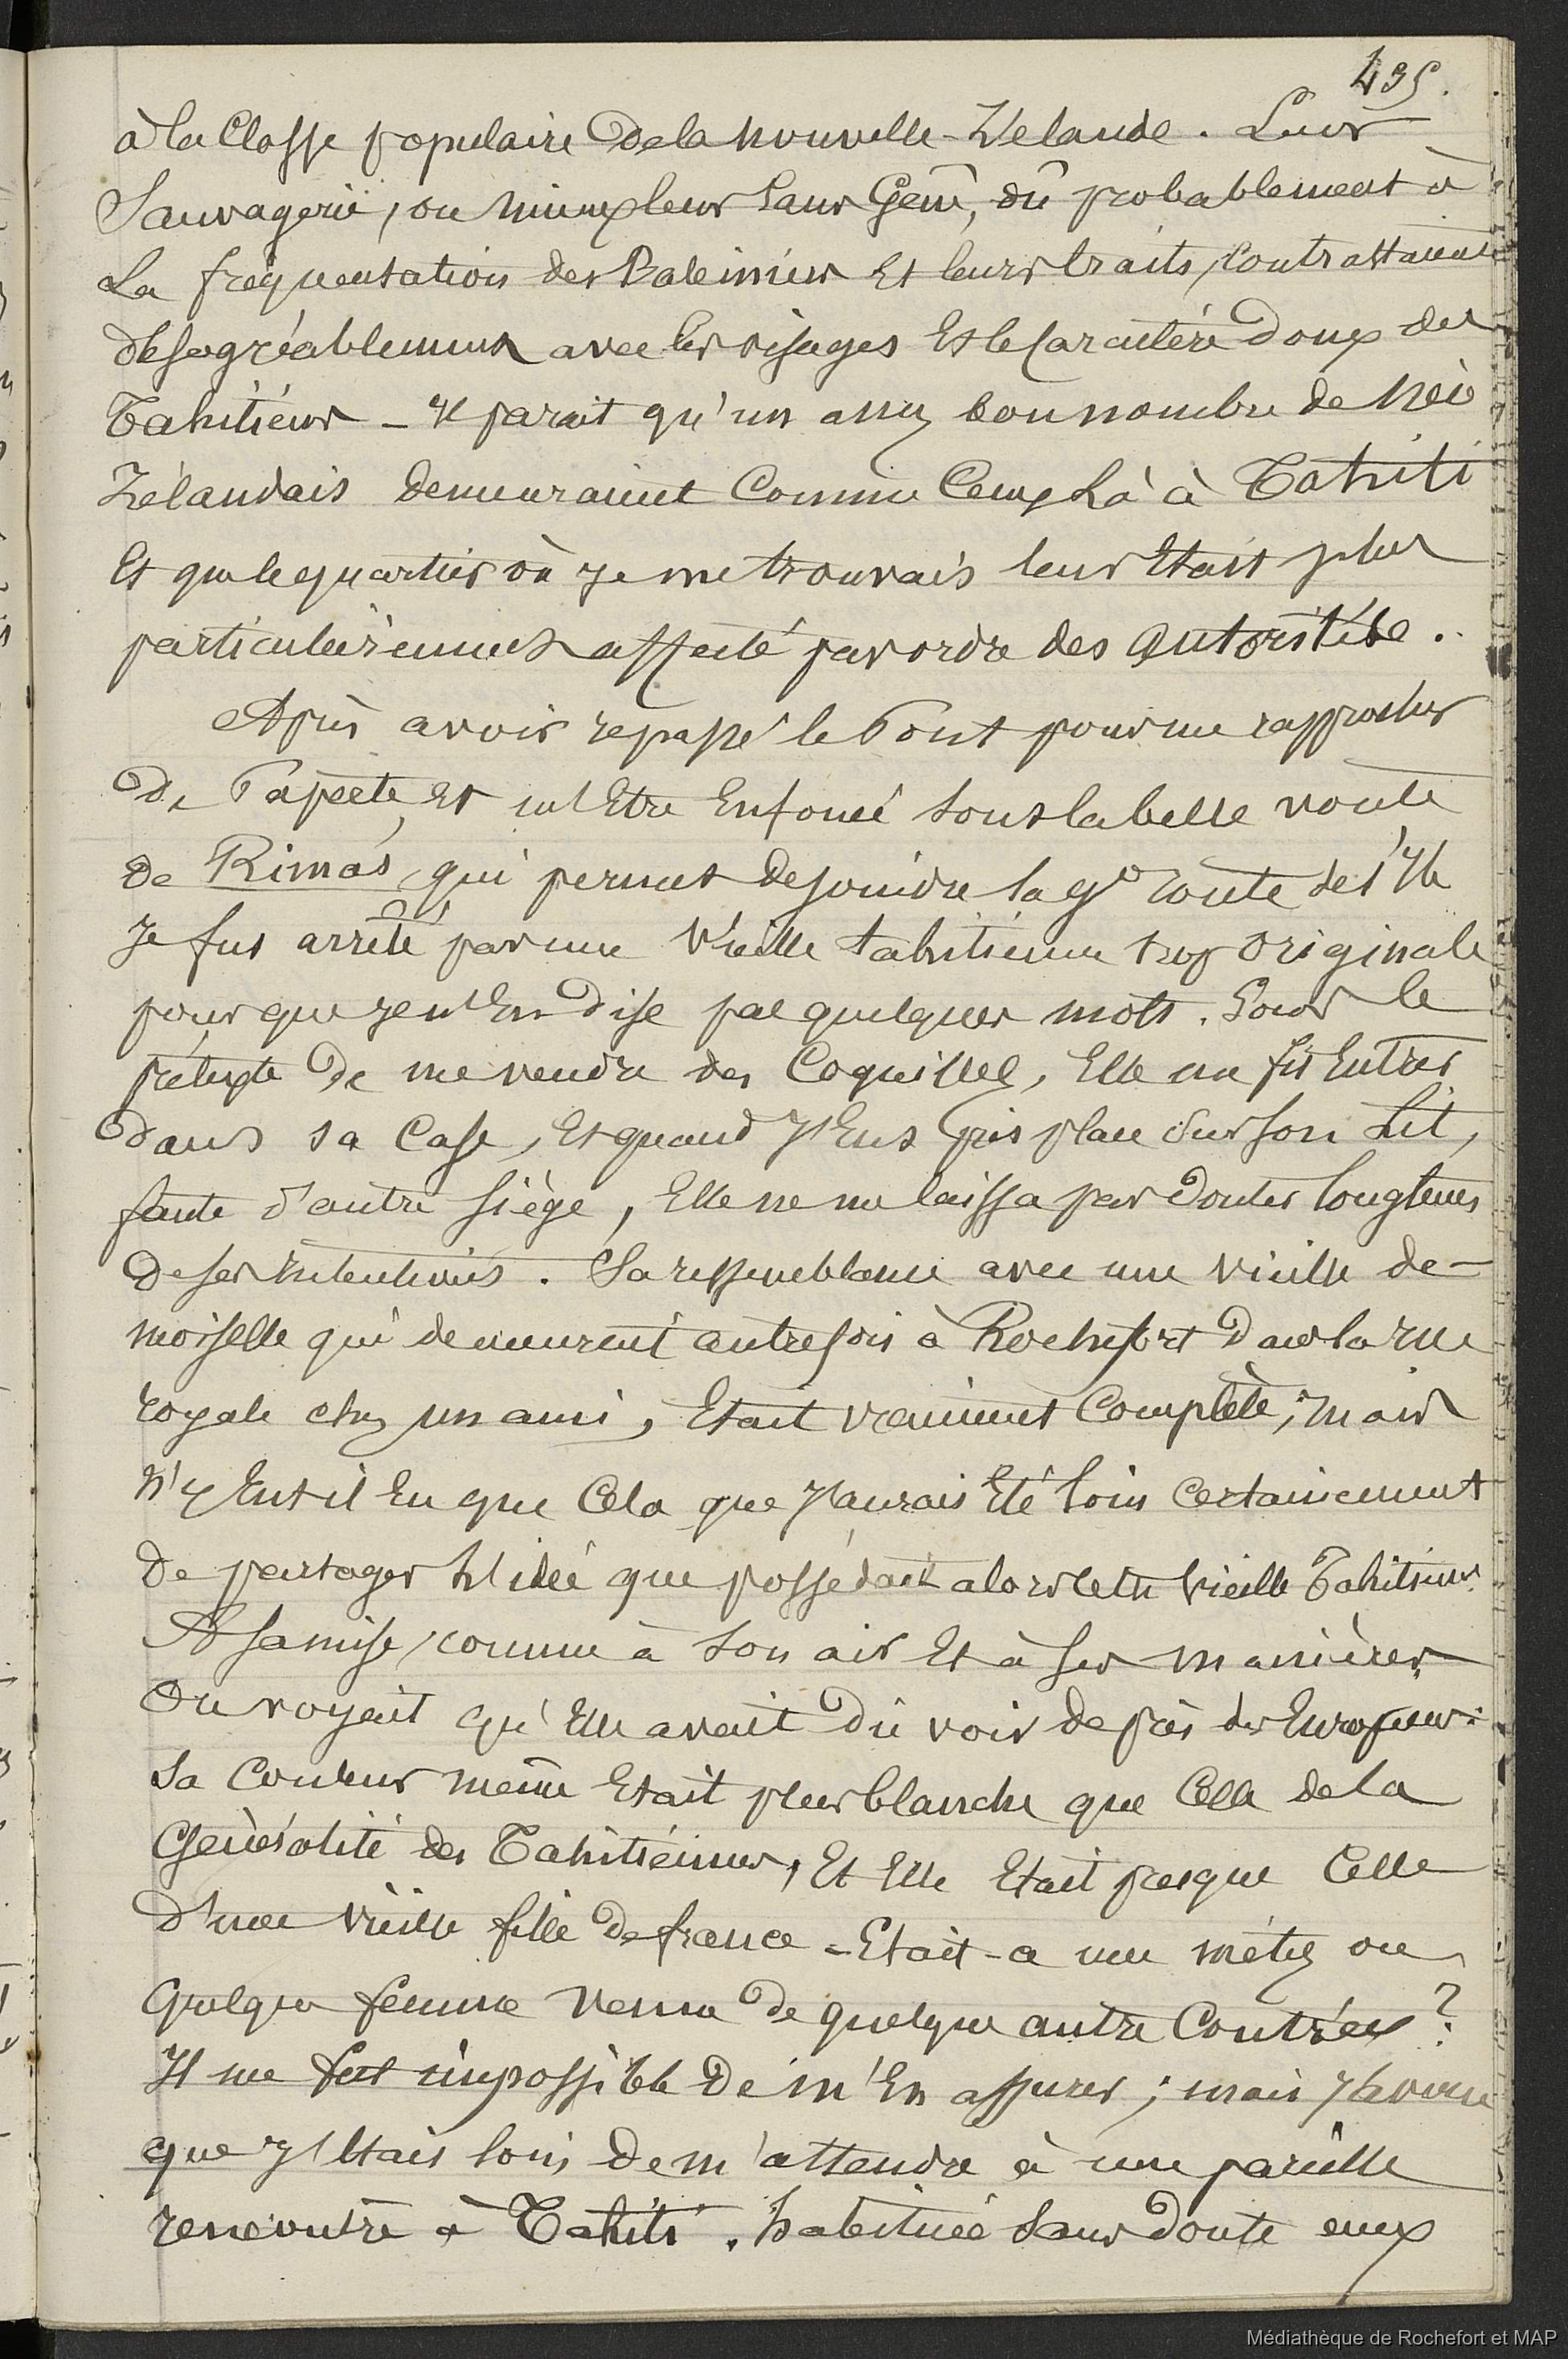 435.
à la Classe populaire de la Nouvelle-Zélande. Leur
Sauvagerie, ou mieux leur Sans Gêne, dû probablement à
La fréquentation des Baleiniers Et leurs traits, Contrastaient
désagréablement avec les visages Et le Caractère doux des
Tahitiens – Il parait qu'un assez bon nombre de Néo
Zélandais demeuraient Comme Ceux Là à Tahiti
Et que le quartier où Je me trouvais leur Etait plus
particulièrement affecté par ordre des autorités.
Après avoir repassé le Pont pour me rapprocher
De Papeete, Et m'Etre Enfoncé sous la belle voute
de Rimas, qui permet de joindre la gde route de l'Ile
Je fus arrêté par une Vieille tahitienne trop originale
pour que Je n'En dise pas quelques mots. Sous le
prétexte De me vendre des Coquilles, Elle me fit Entrer
Dans sa Case, Et quand J'Eus pris place sur son Lit,
faute d'autre Siège, Elle ne me laissa pas Douter longtems
De ses intentions. Sa ressemblance avec une vieille de-
moiselle qui demeurait autrefois à Rochefort Dans la rue
royale chez un ami, Etait vraiment Complète; mais
N'y Eut il Eu que Cela que J'aurais Eté loin Certainement
De partager l'idée que possédait alors cette Vieille Tahitienne.
A sa mise, comme à son air Et à ses manières
On voyait qu'Elle avait Dû voir de près des Européens:
Sa Couleur même Etait plus blanche que Celle de la
Généralité des Tahitiennes, Et Elle Etait presque Celle
d'une vieille fille De france – Etait-ce une métis ou
Quelque femme Venue De quelque autre Contrée?
Il me fut impossible De m'En assurer; mais J'avoue
que J'Etais loin De m'attendre à une pareille
rencontre à Tahiti. habituée Sans Doute aux
Médiathèque de Rochefort et MAP